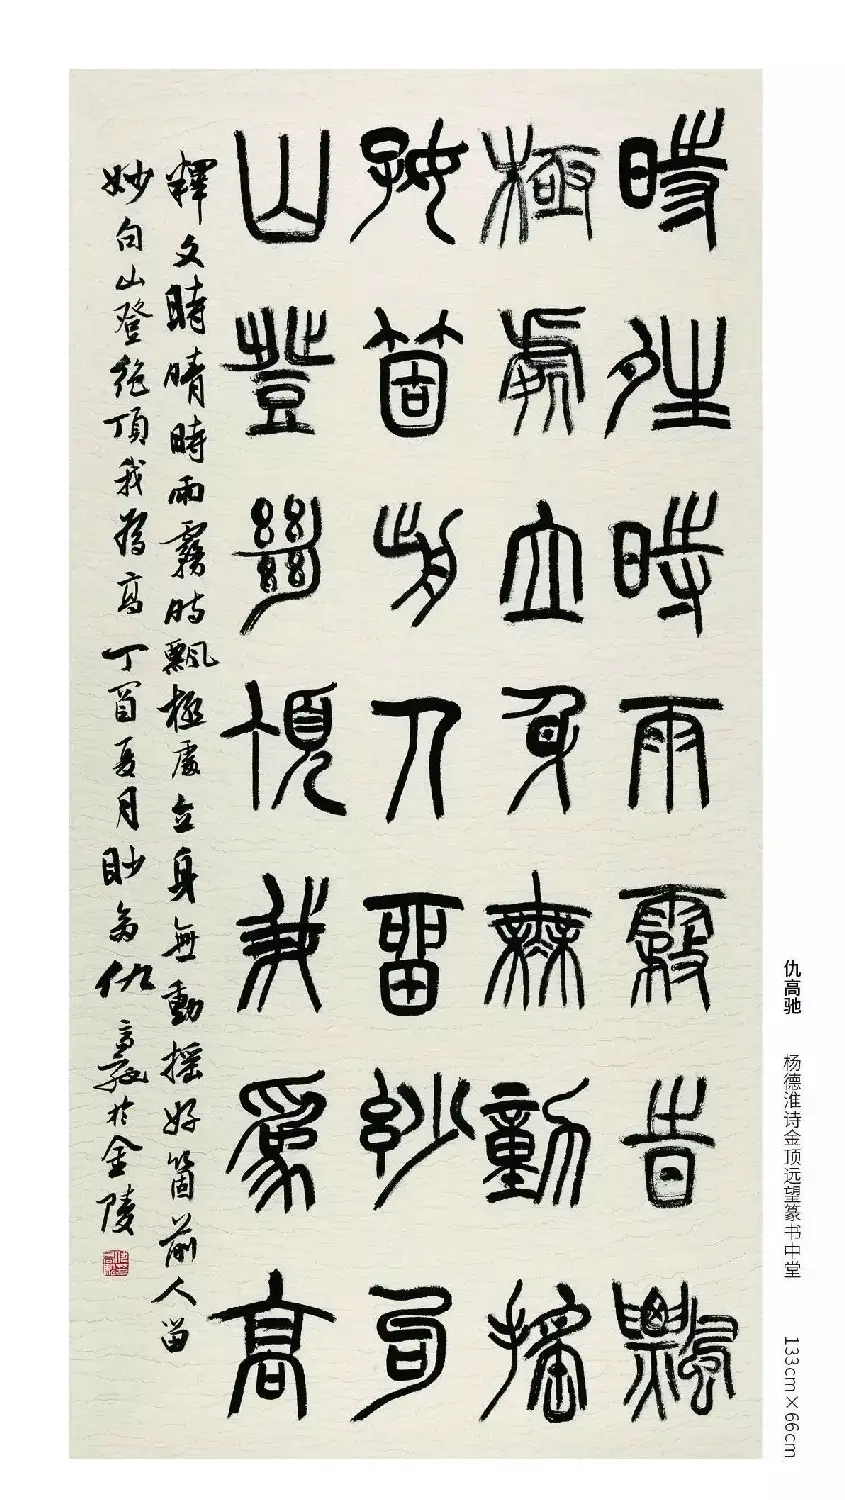 時姓時雨霧時飄
極處立身無動搖
好箇前人留妙句
山登絕頂我為高
釋文時晴時雨霧時飄極處立身無動搖好箇前人留
妙句山登絕頂我為高丁酉夏月時於仇高驰於金陵
仇高驰 杨德淮诗金顶远望篆书中堂 133cm×66cm